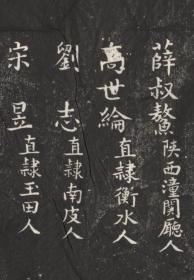 薛叔鰲陝西潼關廳人
高世綸直隸衡水人
劉志直隸南皮人
宋昱直隸玉田人